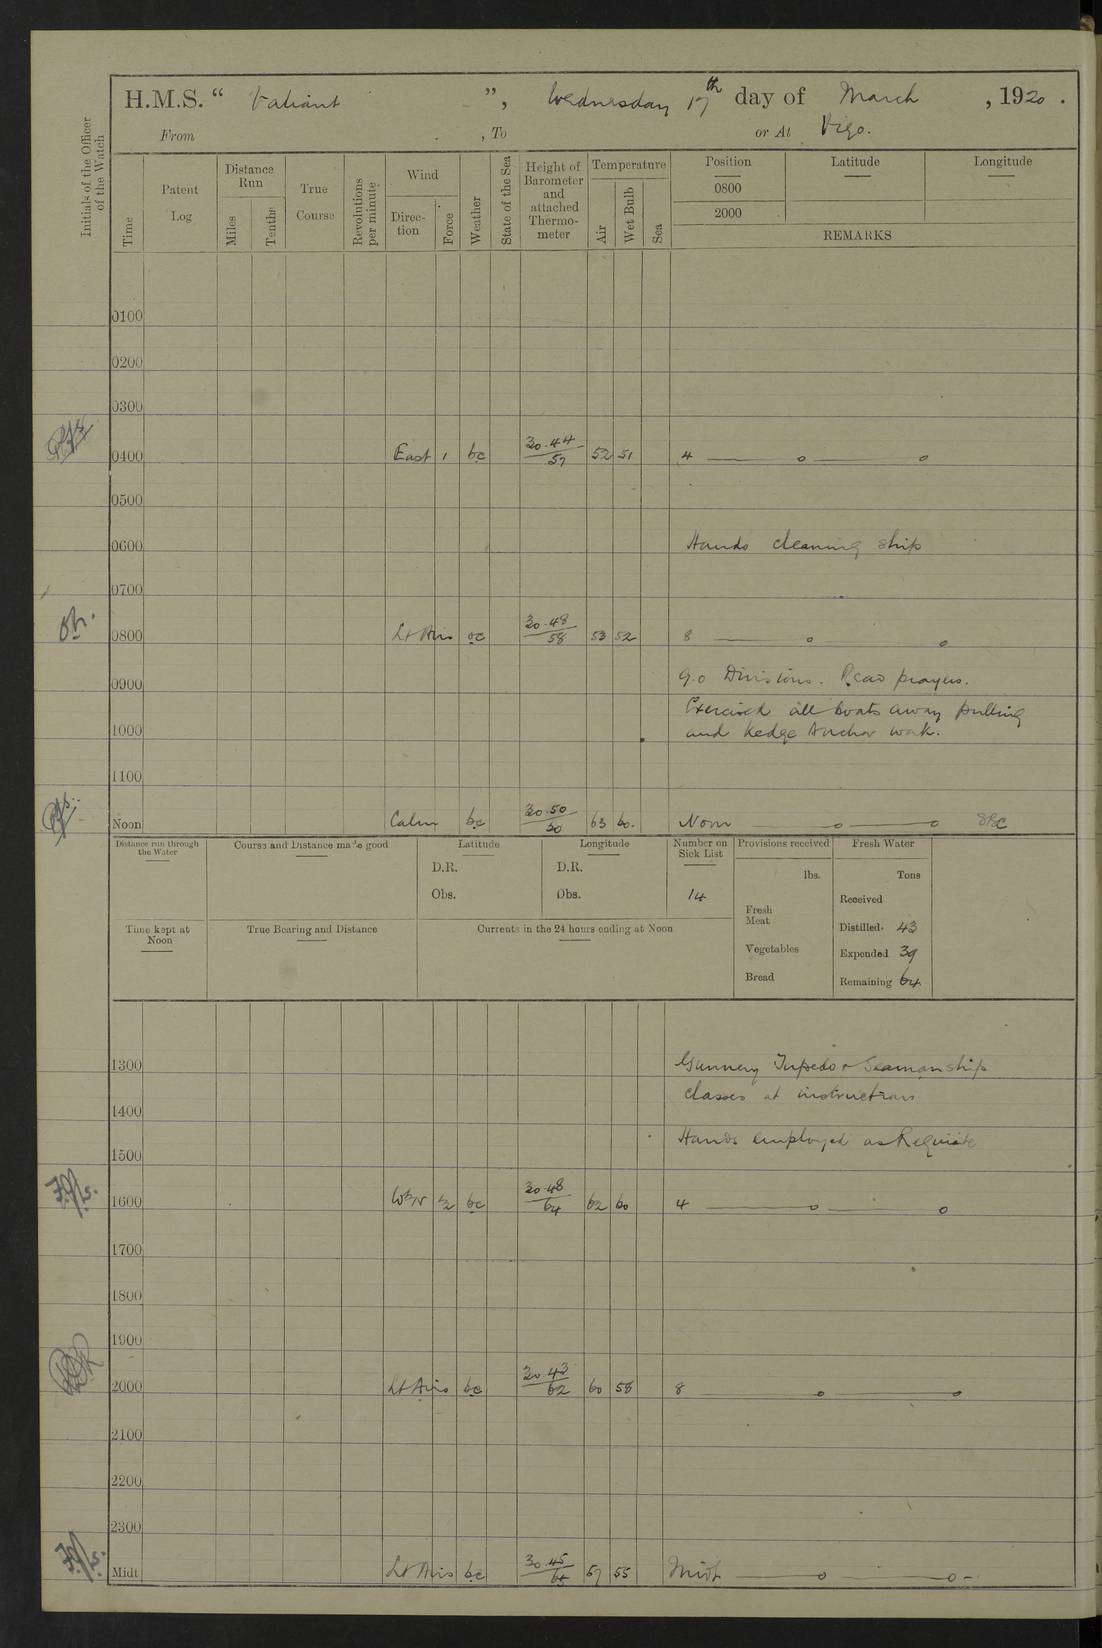 H.M.S. “ Valiant ”, Wednesday 17th day of March , 1920 .
From , To or At Vigo.
Initials of the Officer of the Watch
Time
Patent Log
Distance Run
Miles
Tenths
True Course
Revolutions per minute
Wind
Direction
Force
Weather
State of the Sea
Height of Barometer and attached Thermometer
Temperature
Air
Wet Bulb
Sea
Position
Latitude
Longitude
0800
2000
REMARKS
0100
0200
0300
0400 East 1 bc 30.44/57 52 51 4 — o — o
0500
0600 Hands cleaning ship
0700
0800 Lt Airs oc 30.48/58 53 52 8 — o — o
0900 9.0 Divisions. Read prayers.
Exercised all boats away pulling
1000 and Kedge Anchor work.
1100
Noon Calm bc 30.50/ 63 60. Noon — o — o
Distance run through the Water
Course and Distance made good
Latitude
D.R.
Obs.
Longitude
D.R.
Obs.
Number on Sick List
14
Provisions received
lbs.
Fresh Meat
Vegetables
Bread
Fresh Water
Tons
Received
Distilled 43
Expended 39
Remaining 64
Time kept at Noon
True Bearing and Distance
Currents in the 24 hours ending at Noon
1300 Gunnery Torpedo & Seamanship
classes at instructions
1400
Hands employed as Requisite
1500
1600 WbN ½ bc 30.48/64 62 60 4 — o — o
1700
1800
1900
2000 Lt Airs bc 30.43/62 60 58 8 — o — o
2100
2200
2300
Midt Lt Airs bc 30.45/ 57 55 Midt — o — o -